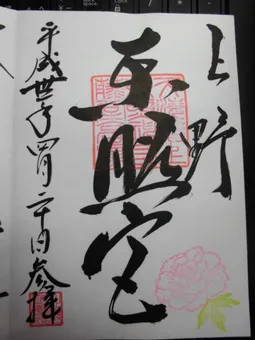 上野
東照宮
平成卅年四月二十日参拝